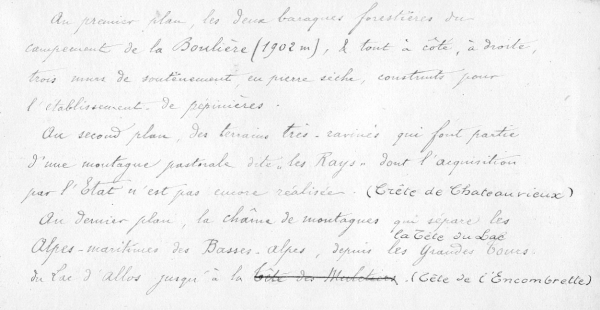 Au premier plan, les deux baraques forestières du
campement de la Boulière (1902 m), & tout à côté, à droite,
trois murs de soutènement, en pierre sèche, construits pour
l'établissement de pépinières.
Au second plan, des terrains très-ravinés qui font partie
d'une montagne pastorale dite "les Rays" dont l'acquisition
par l'Etat n'est pas encore réalisée. (Crête de Chateauvieux)
Au dernier plan, la chaîne de montagnes qui sépare les
la Tête du Lac
Alpes-maritimes des Basses-Alpes, depuis les Grandes Tours
du Lac d'Allos jusqu'à la Tête des Muletiers. (Tête de l'Encombrette)